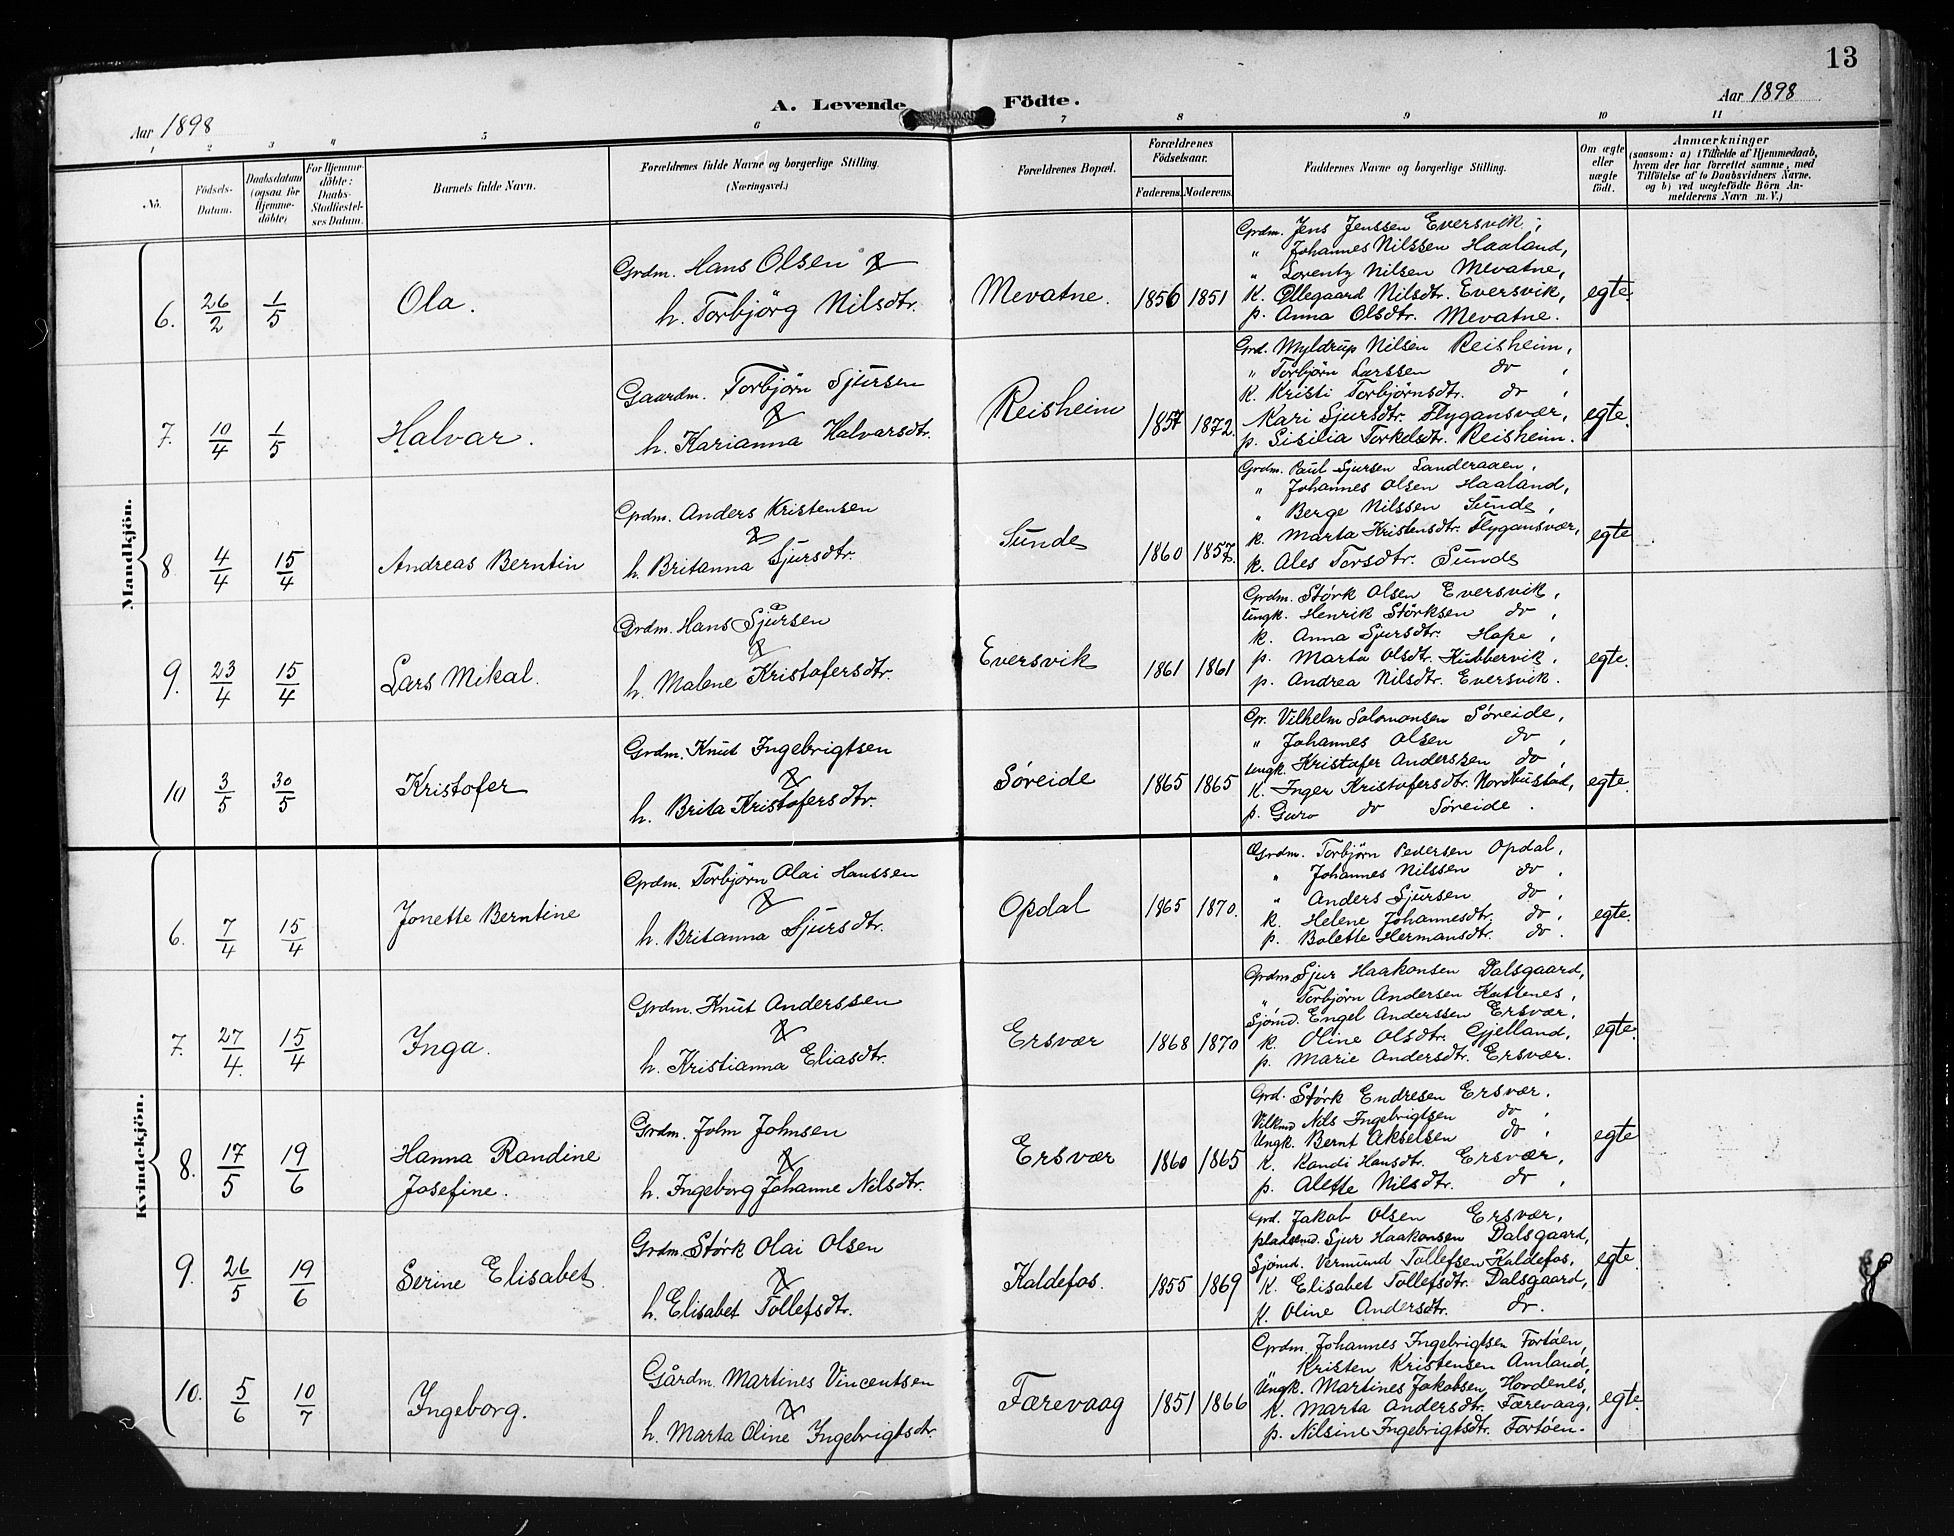 13
A. Levende Födte.
Aar 1898
Aar 1898
1 2 3 4 5 6 7 8 9 10 11
No.
Födsels-Datum.
Daabsdatum (ogsaa for Hjemme-döbte)
For Hjemme-döbte: Daabs-Stadfæstel-ses Datum.
Barnets fulde Navn.
Forældrenes fulde Navne og borgerlige Stilling.
(Næringsvei.)
Forældrenes Bopæl.
Forældrenes Födselsaar.
Faderens. Moderens.
Faddernes Navne og borgerlige Stilling.
Om ægte eller uægte født.
Anmærkninger
(saasom: a) i Tilfælde af Hjemmedaab,
hvem der har forrettet samme, med
Tilföielse af to Daabsvidners Navne,
og b) ved uægtefödte Börn An-
melderens Navn m. V.)
Mandkjön.
6. 26/2 1/5 Ola.
Grdm. Hans Olsen &
h. Torbjörg Nilsdtr.
Mevatne. 1856 1851
Grdm. Jens Jenssen Eversvik,
" Johannes Nilssen Haaland,
" Lorentz Nilsen Mevatne,
K. Ollegaard Nilsdtr. Eversvik,
p. Anna Olsdtr. Mevatne.
egte.
7. 10/4 1/5 Halvar.
Gaardm. Torbjörn Sjursen
&
h. Karianna Halvarsdtr.
Reisheim 1857 1872.
Grd. Myldrup Nilsen Reisheim,
" Torbjörn Larssen do,
K. Kristi Torbjörnsdtr. do,
Kari Sjursdtr. Flygansvær,
p. Sisilia Torkelsdtr. Reisheim.
egte.
8 4/4 15/4 Andreas Berntin
Grdm. Anders Kristensen
&
h. Britanna Sjursdtr.
Sunde 1860 1857.
Grdm. Paul Sjursen Landeraaen,
" Johannes Olsen Haaland,
" Berge Nilssen Sunde,
k. Marta Kristensdtr. Flygansvær,
k. Ales Torsdtr. Sunde
egte
9. 23/4 15/4 Lars Mikal.
Grdm. Hans Sjursen
&
h. Malene Kristofersdtr.
Eversvik 1861 1861
Grdm. Störk Olsen Eversvik,
Ungk. Henrik Störksen do,
k. Anna Sjursdtr. Hope,
p. Marta Olsdtr. Kubbervik,
p. Andrea Nilsdtr. Eversvik.
egte.
10 3/5 30/5 Kristofer
Grdm. Knut Ingebrigtsen
&
h. Brita Kristofersdtr.
Söreide 1865 1865
Gr. Vilhelm Salomonsen Söreide,
" Johannes Olsen do,
Ungk. Kristofer Anderssen do,
K. Inger Kristofersdtr. Nordhustad,
p. Guro do Söreide.
egte.
Kvindekjön.
6. 7/4 15/4 Jonette Berntine
Grdm. Torbjörn Olai Hanssen
&
h. Britanna Sjursdtr.
Opdal 1865 1870.
Grdm. Torbjörn Pedersen Opdal,
" Johannes Nilssen do,
" Anders Sjursen do,
k. Helene Johannesdtr. do,
p. Bolette Hermansdtr. do.
egte.
7. 27/4. 15/4 Inga.
Grdm. Knut Anderssen
&
h. Kristianna Eliasdtr.
Ersvær 1868 1870
Grdm. Sjur Haakonsen Dalsgaard,
" Torbjörn Andersen Kattenes,
Sjömd. Engel Anderssen Ersvær,
k. Oline Olsdtr. Gjelland,
p. Marie Andersdtr. Ersvær.
egte.
8. 17/5 19/6 Hanna Randine
Josefine.
Grdm. John Johnsen
&
h. Ingeborg Johanne Nilsdtr.
Ersvær 1860 1865
Grd. Störk Endresen Ersvær,
Nils Ingebrigtsen do,
Ungk. Bernt Akselsen do,
K. Randi Hansdtr. Ersvær,
p. Alette Nilsdtr. do,
egte
9. 26/5 19/6 Serine Elisabet.
Grdm. Störk Olai Olsen
&
h. Elisabet Tollefsdtr.
Kaldefos. 1855 1869
Grd. Jakob Olsen Ersvær,
pladsmd. Sjur Haakonsen Dalsgaard,
Sjömd. Vermund Tollefsen Kaldefos,
K. Elisabet Tollefsdtr. Dalsgaard,
K. Oline Andersdtr. do.
egte.
10. 5/6 10/7 Ingeborg.
Gårdm. Martines Vincentsen
&
h. Marta Oline Ingebrigtsdtr.
Færevaag 1851 1866
Grdm. Johannes Ingebrigtsen Fortöen,
" Kristen Kristensen Amland,
Ungk. Martines Jakobsen Hordenes,
k. Marta Andersdtr. Færevaag,
p. Nilsine Ingebrigtsdtr. Fortöen.
egte.